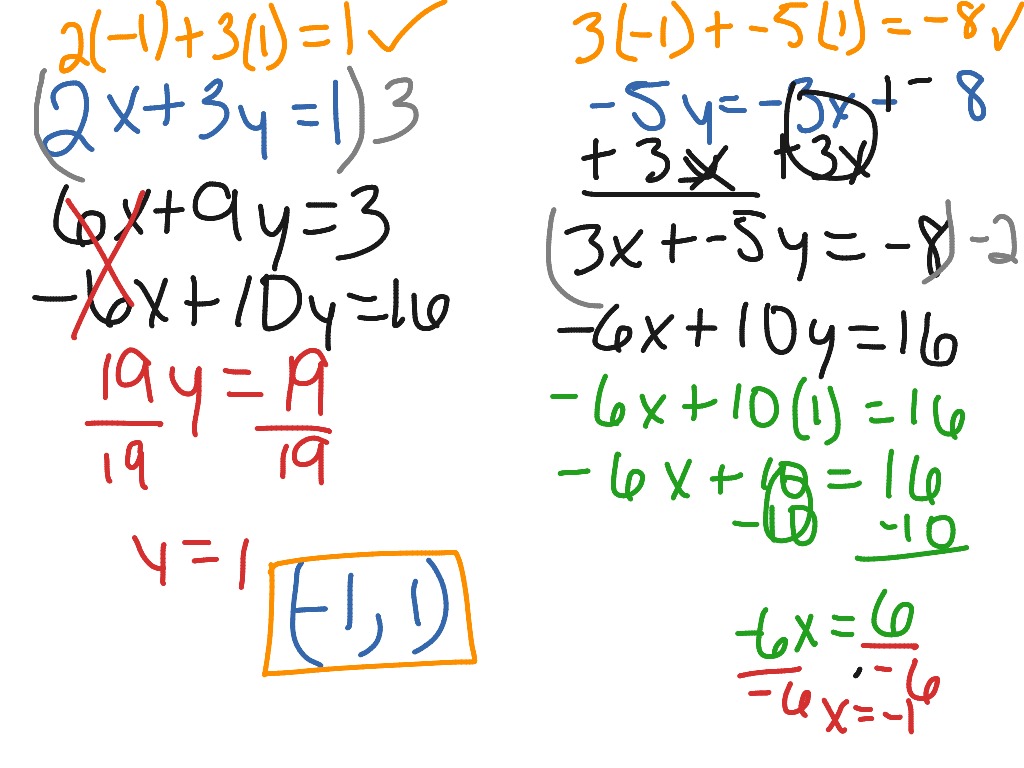 2(-1)+3(1)=1✓
(2x+3y=1)3
6x+9y=3
-6x+10y=16
19y=19
19 19
y=1
(-1,1)
3(-1)+-5(1)=-8✓
-5y=-3x+-8
+3x +3x
(3x+-5y=-8)-2
-6x+10y=16
-6x+10(1)=16
-6x+10=16
-10 -10
-6x=6
-6 -6
x=-1